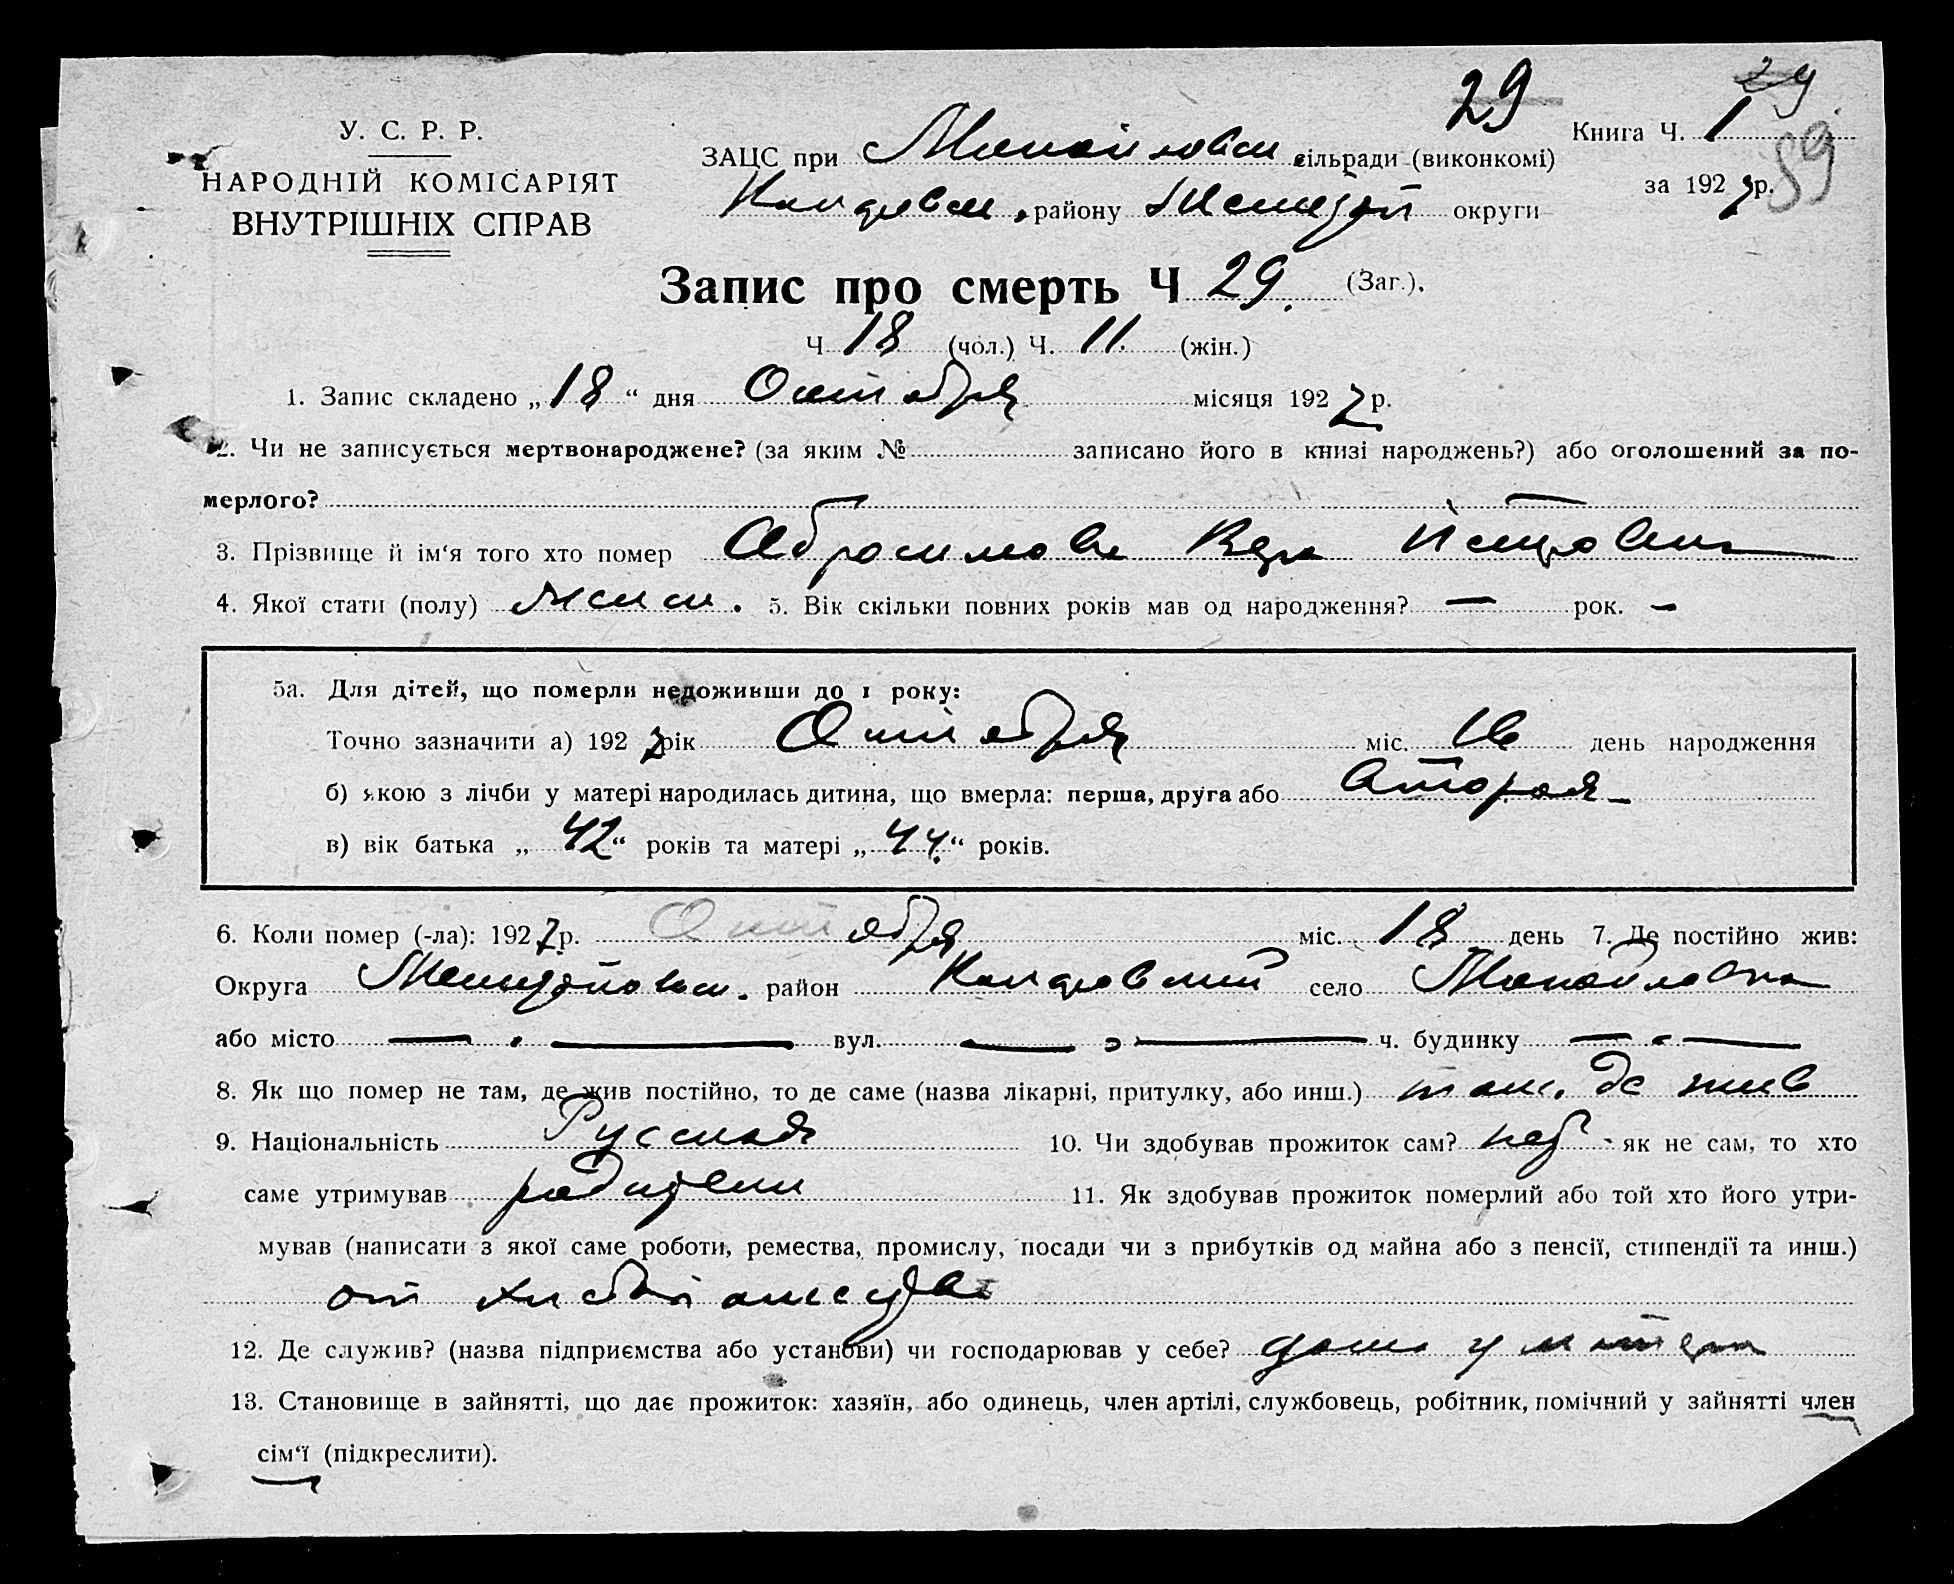 29
29
У. С. Р. Р.
НАРОДНІЙ КОМІСАРІЯТ
ВНУТРІШНІХ СПРАВ
Книга Ч. 1
59
ЗАЦС при сільради (виконкомі)
за 1927 р.
району округи
Запис про смерть Ч 29. (Заг.).
Ч 18 (чол.) Ч. 11. (жін.)
1. Запис складено „18“ дня Октября місяця 1927 р.
2. Чи не записується мертвонароджене? (за яким № записано його в книзі народжень?) або оголошений за по-
мерлого?
3. Прізвище й ім‘я того хто помер Абросимова Вера Петровна
4. Якої стати (полу) женск. 5. Вік скільки повних років мав од народження? — рок. —
5а. Для дітей, що померли недоживши до 1 року:
Точно зазначити а) 1927 рік Октября міс. 16 день народження
б) якою з лічби у матері народилась дитина, що вмерла: перша, друга або вторая
в) вік батька „42“ років та матері „44“ років.
6. Коли помер (-ла): 1927 р. Октября міс. 18 день 7. Де постійно жив:
Округа район село
або місто — . — вул. — — ч. будинку — —
8. Як що помер не там, де жив постійно, то де саме (назва лікарні, притулку, або инш.) там де жив
9. Національність Русская 10. Чи здобував прожиток сам? нет як не сам, то хто
саме утримував родители 11. Як здобував прожиток померлий або той хто його утри-
мував (написати з якої саме роботи, ремества, промислу, посади чи з прибутків од майна або з пенсії, стипендії та инш.)
от хлебопашества
12. Де служив? (назва підприємства або установи) чи господарював у себе? дома у матери
13. Становище в зайнятті, що дає прожиток: хазяїн, або одинець, член артілі, службовець, робітник, помічний у зайнятті член
сім‘ї (підкреслити).